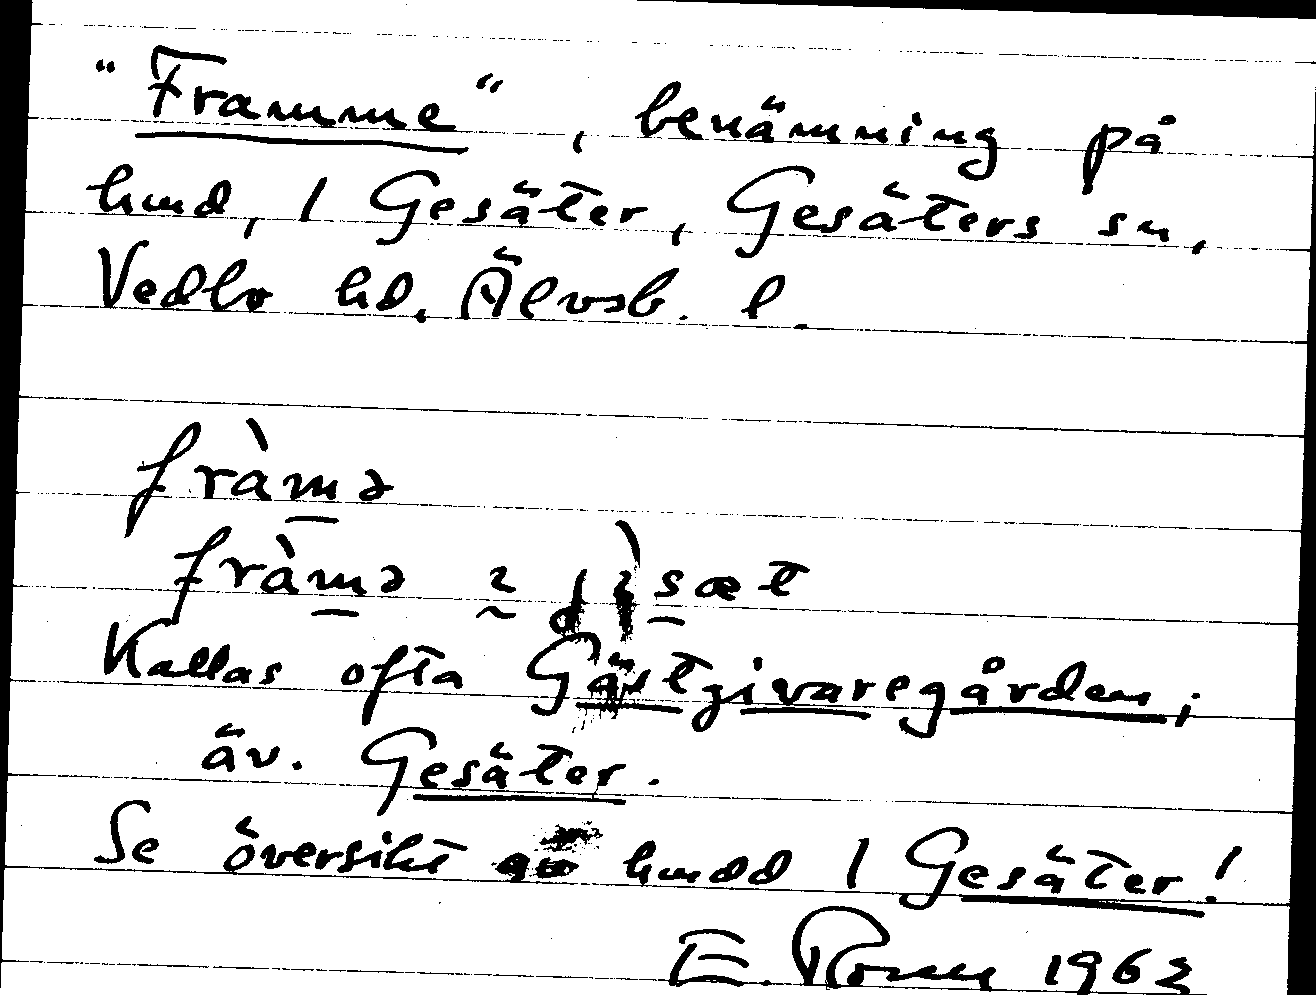 "Framme", benämning på
hmd, 1 Gesäter, Gesäters sn,
Vedbo hd. Älvsb. l.
fràmə
fràmə sæt
Kallas ofta Gästgivaregården;
äv. Gesäter.
Se översikt hmdd 1 Gesäter!
E. 1962